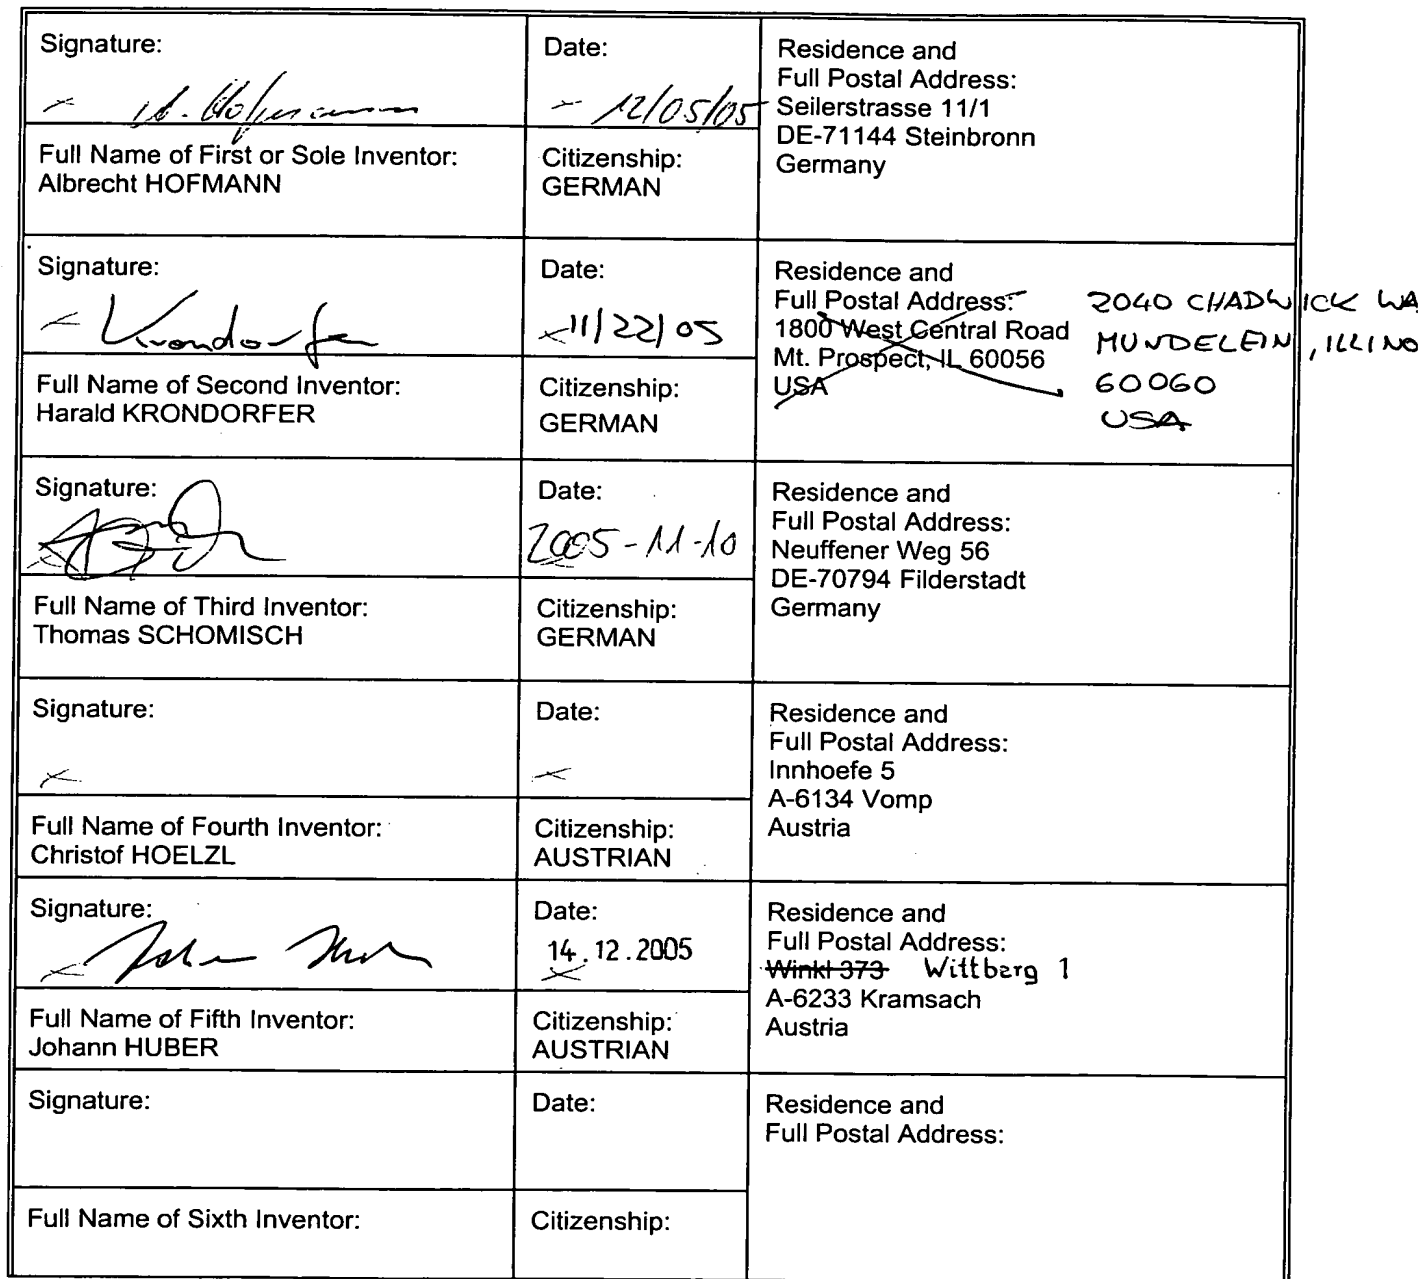 Signature:
A. Hofmann
Date:
12/05/05
Residence and
Full Postal Address:
Seilerstrasse 11/1
DE-71144 Steinbronn
Germany
Full Name of First or Sole Inventor:
Albrecht HOFMANN
Citizenship:
GERMAN
Signature:
Krondorfer
Date:
11/22/05
Residence and
Full Postal Address:
1800 West Central Road
Mt. Prospect, IL 60056
USA
2040 CHADWICK WA
MUNDELEIN, ILLINO
60060
USA
Full Name of Second Inventor:
Harald KRONDORFER
Citizenship:
GERMAN
Signature:
Date:
2005-11-10
Residence and
Full Postal Address:
Neuffener Weg 56
DE-70794 Filderstadt
Germany
Full Name of Third Inventor:
Thomas SCHOMISCH
Citizenship:
GERMAN
Signature:
Date:
Residence and
Full Postal Address:
Innhoefe 5
A-6134 Vomp
Austria
Full Name of Fourth Inventor:
Christof HOELZL
Citizenship:
AUSTRIAN
Signature:
Johann Huber
Date:
14.12.2005
Residence and
Full Postal Address:
Winkl 373 Wittberg 1
A-6233 Kramsach
Austria
Full Name of Fifth Inventor:
Johann HUBER
Citizenship:
AUSTRIAN
Signature:
Date:
Residence and
Full Postal Address:
Full Name of Sixth Inventor:
Citizenship: